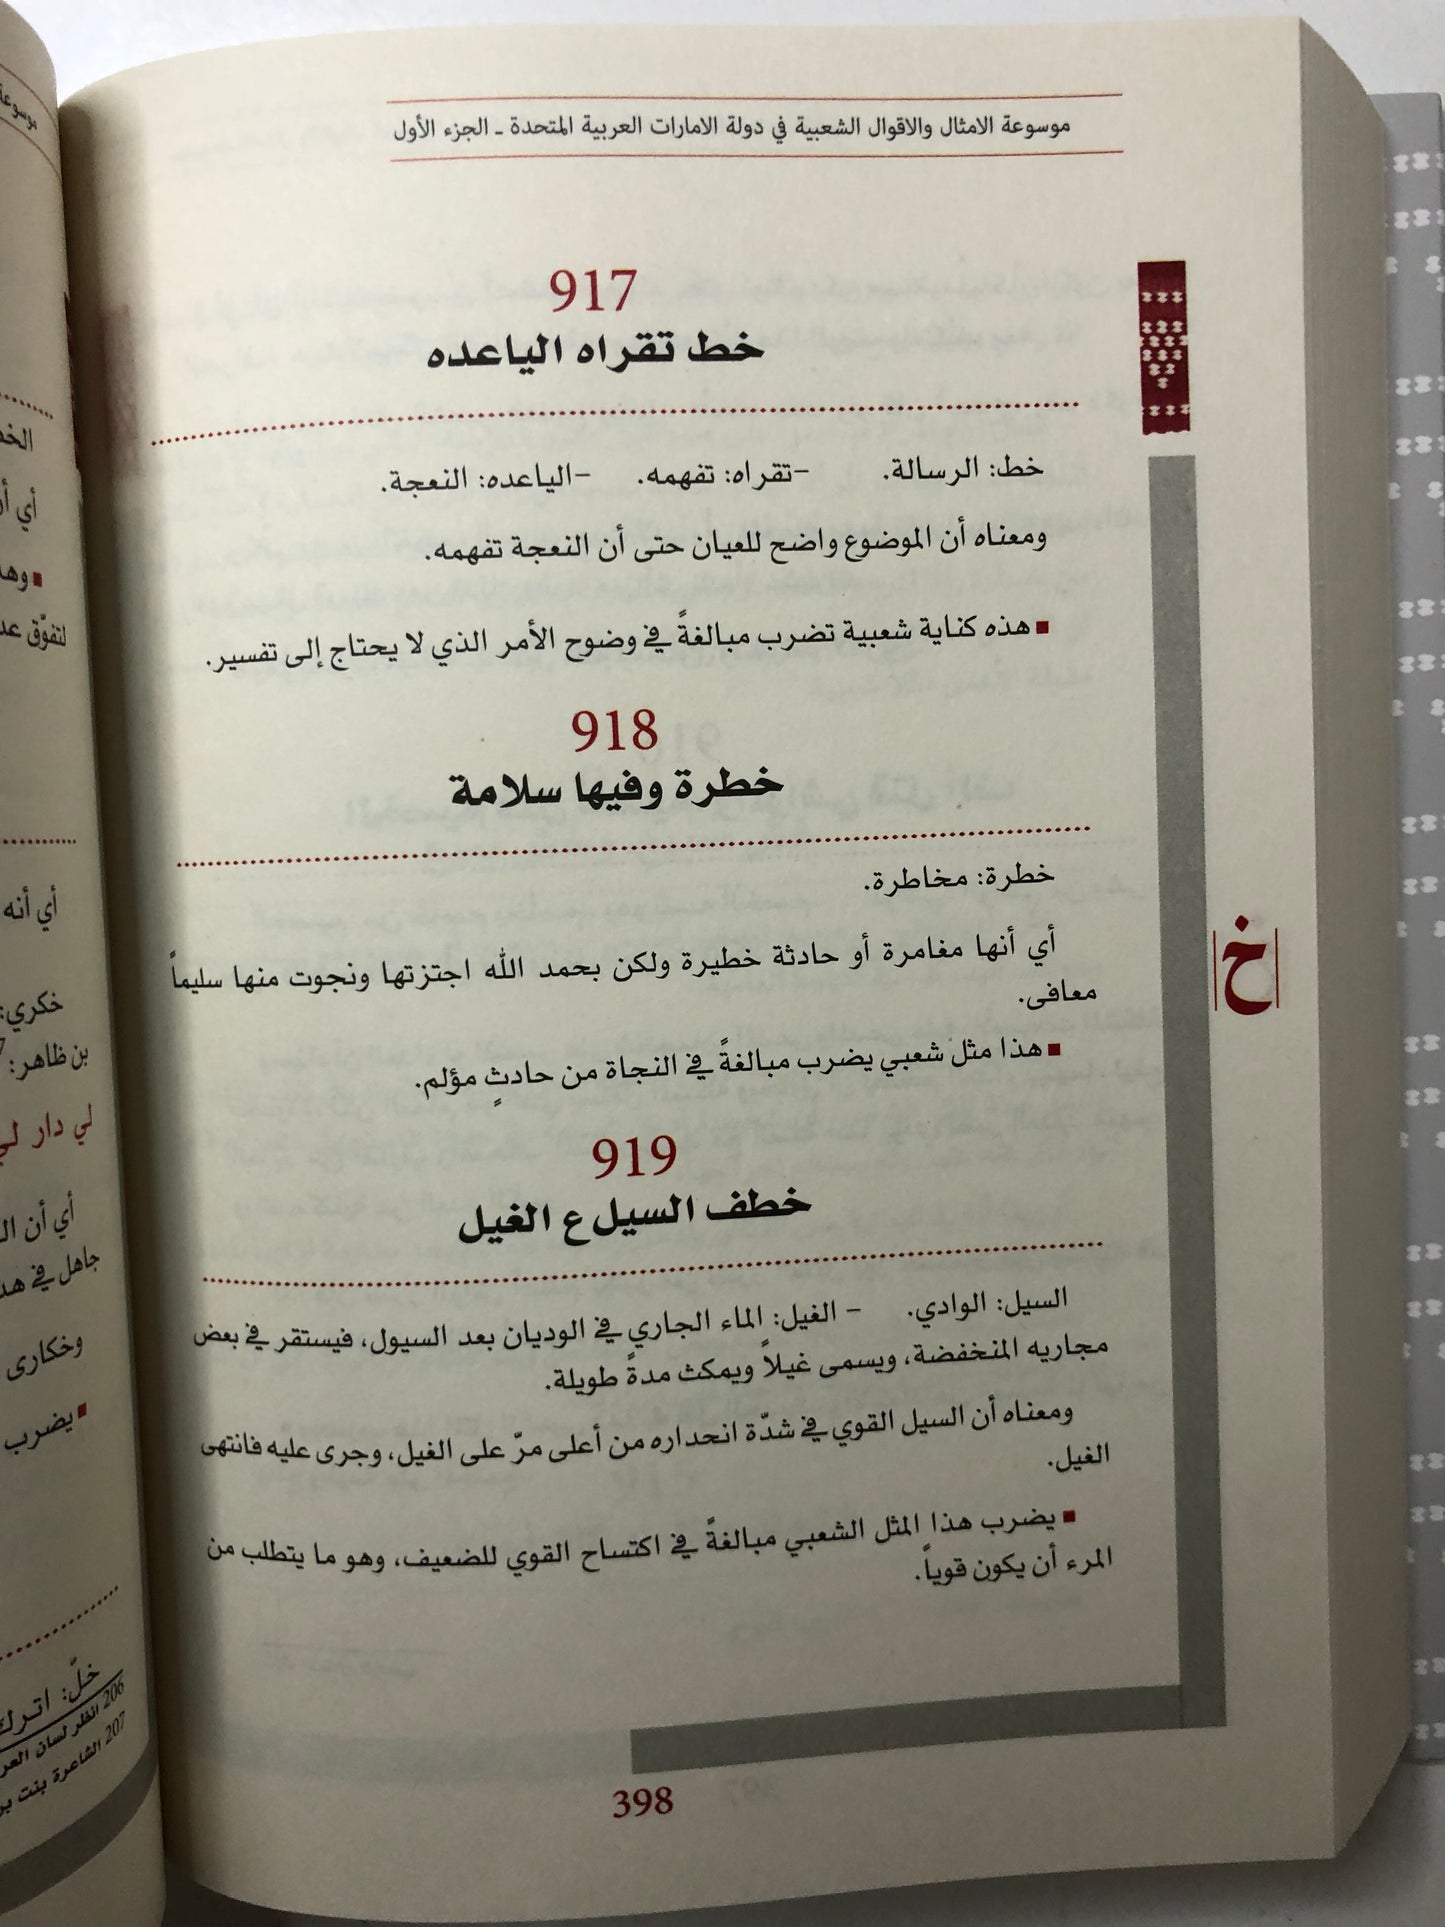 موسوعة الامثال والاقوال الشعبية في دولة الامارات العربية المتحدة ـ الجزء الأول
917
خط تقراه الياعده
خط: الرسالة. –تقراه: تفهمه. –الياعده: النعجة.
ومعناه أن الموضوع واضح للعيان حتى أن النعجة تفهمه.
■ هذه كناية شعبية تضرب مبالغةً في وضوح الأمر الذي لا يحتاج إلى تفسير.
918
خطرة وفيها سلامة
خطرة: مخاطرة.
أي أنها مغامرة أو حادثة خطيرة ولكن بحمد الله اجتزتها ونجوت منها سليماً
معافى.
■ هذا مثل شعبي يضرب مبالغةً في النجاة من حادثٍ مؤلم.
919
خطف السيل ع الغيل
السيل: الوادي. – الغيل: الماء الجاري في الوديان بعد السيول، فيستقر في بعض
مجاريه المنخفضة، ويسمى غيلاً ويمكث مدةً طويلة.
ومعناه أن السيل القوي في شدّة انحداره من أعلى مرّ على الغيل، وجرى عليه فانتهى
الغيل.
■ يضرب هذا المثل الشعبي مبالغةً في اكتساح القوي للضعيف، وهو ما يتطلب من
المرء أن يكون قوياً.
خ
398
موسوعة
أي أن
لتفوّق
أي أنه
خكري:
بن ظاهر:
لي دار
أي أن
جاهل في
وخكارى
■ يضرب
خلّ: اترك
206 انظر لسان
207 الشاعرة بنت